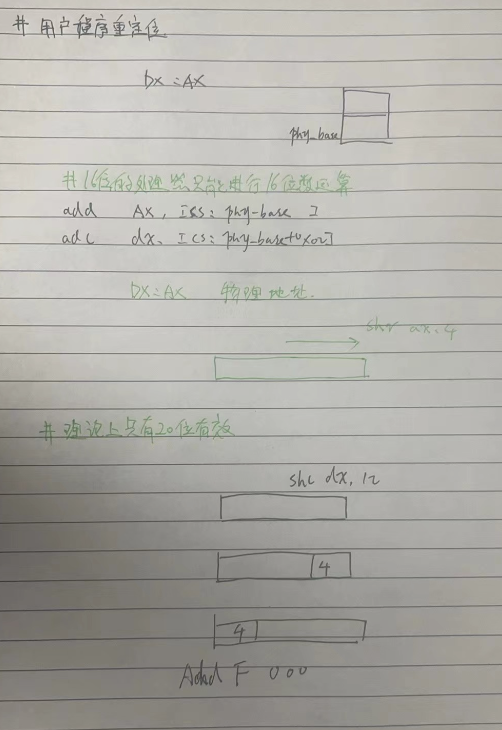 # 用户程序重定位
DX:AX
phy_base
# 16位的处理器只能进行16位数运算
add AX, [cs: phy-base ]
adc dx, [cs: phy-base+0x02]
DX:AX 物理地址.
shr ax, 4
# 理论上只有20位有效
shl dx, 12
4
4
And F 000